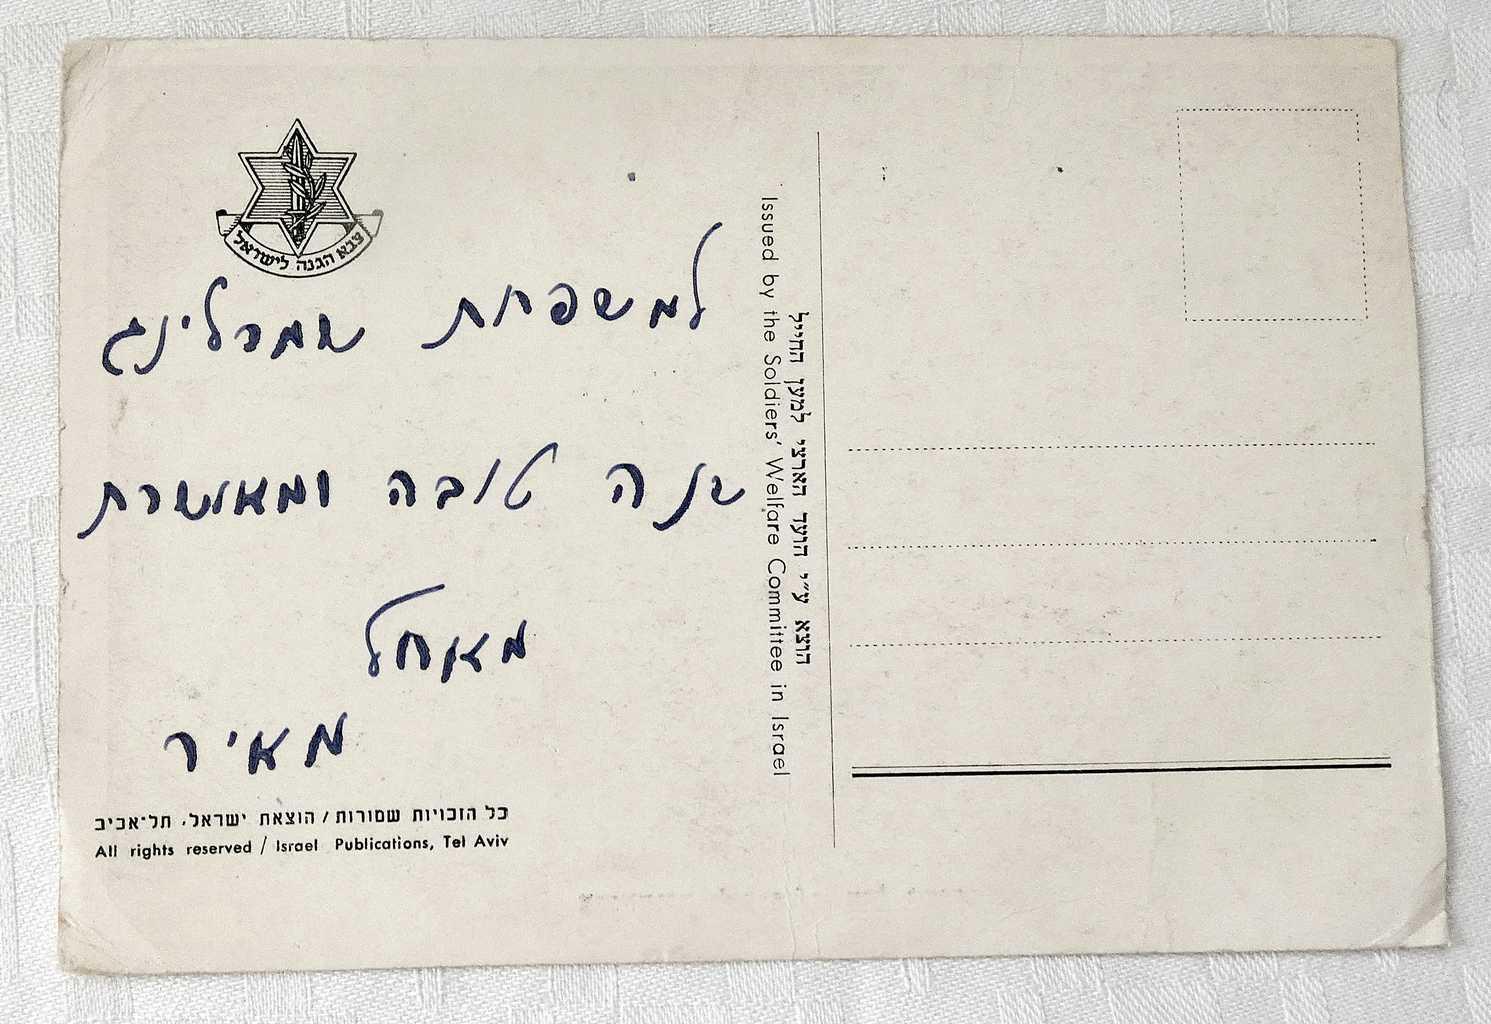 צבא הגנה לישראל
למשפחת שמרלינג
שנה טובה ומאושרת
מאחל
מאיר
כל הזכויות שמורות / הוצאת ישראל, תל־אביב
All rights reserved / Israel Publications, Tel Aviv
הוצא ע״י הועד הארצי למען החייל
Issued by the Soldiers' Welfare Committee in Israel